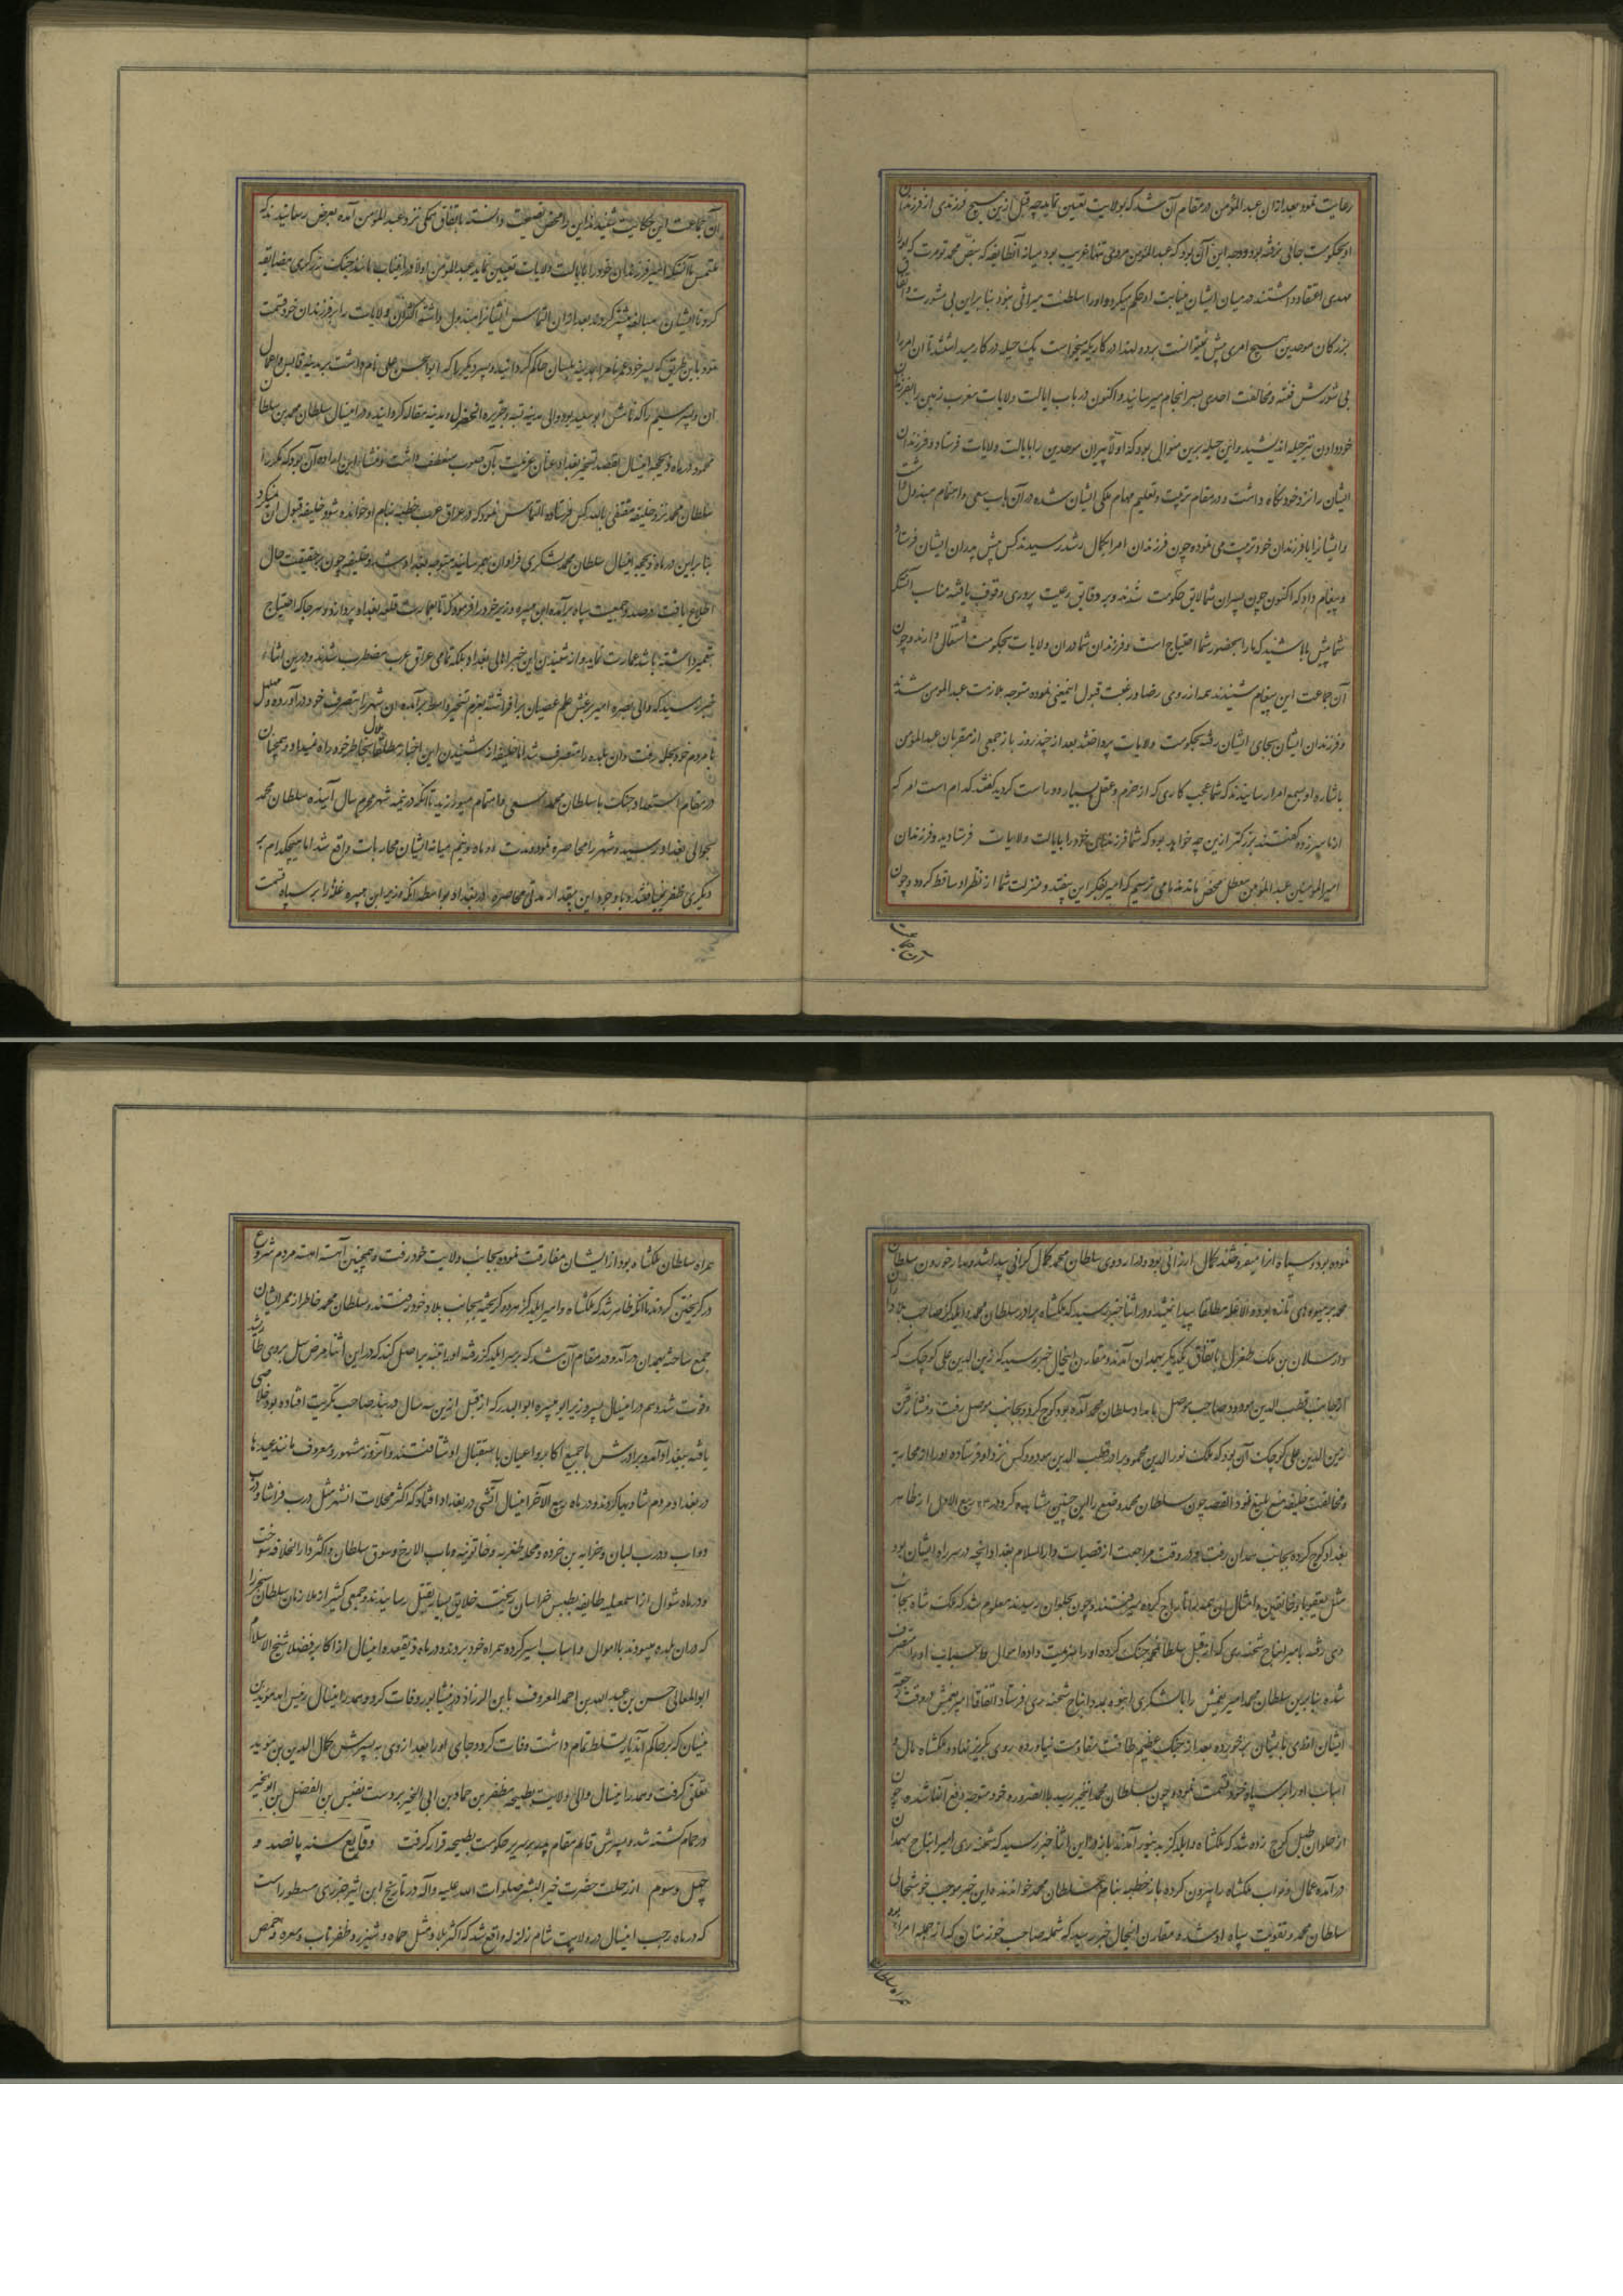 رعایت نمود بعد ازان عبدالمؤمن در مقام آن شد که بولایت تعیین نماید چه قبل ازین هیچ فرزندی از فرزندان
او بحکومت جائی نرفته بود و وجه این آن بود که عبدالمؤمن مردی تنها و غریب بود میانه آنطایفه که بنص محمد تومرت که او را
مهدی اعتقاد داشتند در میان ایشان بنیابت او حکم میکرد و او را سلطنت میراثی نبود بنا براین بی مشورت و اتفاق
بزرکان موحدین هیچ امری پیش نمیتوانست برد و لهذا در کاریکه میخواست یک حیله در کار میداشتند تا آن امر را
بی شورش فتنه و مخالفت احدی بسر انجام میرسانید و اکنون در باب ایالت ولایات مغرب زمین را بفرزندان
خود دادن نیز حیله اندیشید و این حیله برین منوال بود که اولا پسران موحدین را بایالت ولایات فرستاد و فرزندان
ایشان را نزد خود نکاه داشت و در مقام تربیت و تعلیم مهام ملکی ایشان شده در آن باب سعی و اهتمام مبذول داشت
و ایشانرا با فرزندان خود تربیت می نموده چون فرزندان امرا بکمال رشد رسیدند کس پیش پدران ایشان فرستاد
و پیغام داد که اکنون چون پسران شما لایق حکومت شدند و بر دقایق رعیت پروری وقوف یافته مناسب آنستکه
شما پیش ما باشید که ما را بحضور شما احتیاج است و فرزندان شما در ان ولایات بحکومت اشتغال دارند و چون
آن جماعت این پیغام شنیدند همه از روی رضا و رغبت قبول اینمعنی نموده متوجه ملازمت عبدالمومن شدند
و فرزندان ایشان بجای ایشان رفته بحکومت ولایات پرداختند بعد از چند روز باز جمعی از مقربان عبدالمؤمن
باشاره او بسمع امرا رسانیدند که شما عجب کاری که از حزم و عقل بسیار دور است کردید گفتند کدام است امر که
از ما سر زده گفتند بزرکتر ازین چه خواهد بود که شما فرزندان خود را بایالت ولایات فرستادید و فرزندان
امیرالمومنین عبدالمؤمن معطل محض ماندند ما می ترسیم که امیر بفکر این بیفتد و منزلت شما از نظر او ساقط کردد و چون
آن جماعت
آن جماعت این حکایت شنیدند این را محض نصیحت دانسته باتفاق همکی نزد عبدالمؤمن آمده بعرض رسانیدند که
ملتمس ما آنستکه امیر فرزندان خود را بایالت ولایات تعیین نماید عبدالمؤمن اولا در اینباب مانند جنک زرکری مضایقه
کرد تا ایشان مبالغه بیشتر کردند بعد ازان التماس ایشانرا مبذول داشته اکثر آن ولایات را بر فرزندان خود قسمت
نمود باین طریق که پسر خود عمر نام را بمدینه تلمسان حاکم کردانید و پسر دیکر را که ابوالحسن علی نام داشت بمدینه فابس و اعمال
ان و پسر سیم را که نامش ابو سعید بود والی مدینه سبته و جزیره الخضرا و مدینه مقاله کردانید و در اینسال سلطان محمد بن سلطان
محمود در ماه ذیحجه اینسال بقصد تسخیر بغداد عنان عزیمت بآن صوب منعطف داشت و منشا این اراده آن بود که مکررا
سلطان محمد نزد خلیفه مقتفی بالله کس فرستاده التماس نمود که در عراق عرب خطبه بنام او خوانده شود و خلیفه قبول آن نمیکرد
بنا براین در ماه ذیحجه اینسال سلطان محمد لشکری فراوان بهمرسانیده متوجه بغداد شد و خلیفه چون بر حقیقت حال
اطلاع یافت در صدد جمعیت سپاه برآمده ابن هبیره وزیر خود را فرمود که تا بعمارت قلعه بغداد پردازد و هر جا که احتیاج
بتعمیر داشته باشد عمارت نماید و از شنیدن این خبر اهالی بغداد بلکه تمامی عراق عرب مضطرب شدند و در این اثناء
خبر رسید که والی بصره امیر علم عصیان برافراشته بعزم تسخیر واسط برآمده ان شهر را بتصرف خود درآورده و
با مردم خود بحله رفت و ان بلده را متصرف شد اما خلیفه از شنیدن این اخبار مطلقا ملال بخاطر خود راه نمیداد و همچنان
در مقام استعداد جنک با سلطان محمد سعی و اهتمام میورزید تا آنکه در نیمه شهر محرم سال آینده سلطان محمد
بحوالی بغداد رسید و شهر را محاصره نمود و مدت دو ماه و نیم میانه ایشان محاربات واقع شد اما هیچکدام بر
دیکری ظفر نیافتند و با وجود این بمقدار مدتی محاصره در بغداد بواسطه انکه وزیر ابن هبیره غله را بر سپاه قسمت
نموده بود و سپاه انرا میفروختند کمال ارزانی بود و در اردوی سلطان محمد کمال کرانی پیدا شد و مدار خوردن سلطان
محمد بر میوهای تازه بود والا غله مطلقا پیدا نمیشد و در اثنا خبر رسید که ملکشاه برادر سلطان محمد و ایلدکز صاحب بلاد اران
و ارسلان بن ملک طغرل باتفاق یکدیکر بهمدان آمدند و مقارن اینحال خبر رسید که زین الدین علی کوچک که
از جانب قطب الدین مودود صاحب موصل بامداد سلطان محمد آمده بود کوچ کرده بجانب موصل رفت و منشا رفتن
زین الدین علی کوچک آن بود که ملک نورالدین محمود برادر قطب الدین مودود کس نزد او فرستاده او را از محاربه
و مخالفت خلیفه منع بلیغ نمود القصه چون سلطان محمد وضع را این چنین مشاهده کرد در ۲۴ ربیع الاول از ظاهر
بغداد کوچ کرده بجانب همدان رفت و در وقت مراجعت از قصبات دارالسلام بغداد انچه در سر راه ایشان بود
مثل بعقوبا و خانقین و امثال ان همه را تاراج کرده میرفتند و چون بحلوان رسیدند معلوم شد که ملک شاه بجانب
ری رفته با میر اینانج شحنه ری که از قبل سلطان محمد جنک کرده او را هزیمت داده اموال و اسباب او را متصرف
شده بنا برین سلطان محمد امیر را با لشکری انبوه بمدد اینانج شحنه ری فرستاد اتفاقا امیر در وقت
ایشان بر خورده بعد از جنک عظیم طاقت مقاومت نیاورده روی بکریز نهاد و ملکشاه مال و
اسباب او را بر سپاه خود قسمت نموده و چون سلطان محمد اینخبر رسید بالضروره خود متوجه دفع آنها شده چون
از حلوان طبل کوچ زده شد که ملکشاه و ایلدکز بدینور آمدند باز در این اثنا خبر رسید که شحنه ری امیر اینانج بهمدان
درآمده عمال و نواب ملکشاه را بیرون کرده باز خطبه بنام سلطان محمد خواندند این خبر موجب خوشحالی
سلطان محمد و تقویت سپاه او شد و مقارن اینحال خبر رسید که شمله صاحب خوزستان که از جمله امراء
همراه سلطان
همراه سلطان ملکشاه بود از ایشان مفارقت نموده بجانب ولایت خود رفت و همچنین آهسته اهسته مردم شروع
در کریختن کردند تا انکه ظاهر شد که ملکشاه و امیر ایلدکز هر دو کریخته بجانب بلاد خود رفتند و سلطان محمد خاطر از ممر ایشان
جمع ساخته بهمدان درآمد و در مقام آن شد که بر سر ایلدکز رفته او را تنبیه بر اصل کند که در این اثنا مرض سل بر وی طاری شد
و فوت شد و هم در اینسال پسر وزیر ابن هبیره ابوالبدر که از قبل ازین سه سال در بند صاحب تکریت افتاده بود خلاصی
یافته ببغداد آمد و برادرش با جمیع اکابر و اعیان باستقبال او شتافتند و آنروز مشهور و معروف مانند عیدها
در بغداد مردم شادیها کردند و در ماه ربیع الآخر اینسال آتشی در بغداد افتاد که اکثر محلات انشهر مثل درب فراشا و درب
دواب و درب لبان و خرابه بن خرده و محله ظفریه و خاتونیه و باب الازج و سوق سلطان و اکثر دارالخلافه سوخت
و در ماه شوال از اسمعیلیه طایفه بطبس خراسان ریخت خلایق بسیار بقتل رسانیدند و جمعی کثیر از ملازمان سلطان سنجر را
که در ان بلده میبودند با اموال و اسباب اسیر کرده همراه خود بردند و در ماه ذیقعده اینسال از اکابر فضلا شیخ الاسلام
ابوالمعالی حسن بن عبدالله بن احمد المعروف بابن الرزاز در نیشابور وفات کرد و همدر اینسال رئیس مؤیدین
که بر حاکم آمد تسلط تمام داشت وفات کرد و جای او را بعد از وی به پسرش کمال الدین بن مؤید
تعلق کرفت و همدر اینسال والی ولایت بطیحه مظفر بن حماد بن ابی الخیر بر دست نفیس بن الفضل بن ابوالخیر
در حمام کشته شد و پسرش قائم مقام پدر بر سریر حکومت بطیحه قرار کرفت وقایع سنه پانصد و
چهل و سوم از رحلت حضرت خیرالبشر صلوات الله علیه وآله در تاریخ ابن اثیر جزری مسطور است
که در ماه رجب اینسال در ولایت شام زلزله واقع شد که اکثر بلاد مثل حماه و شیزر و کفرتاب و معره و حمص